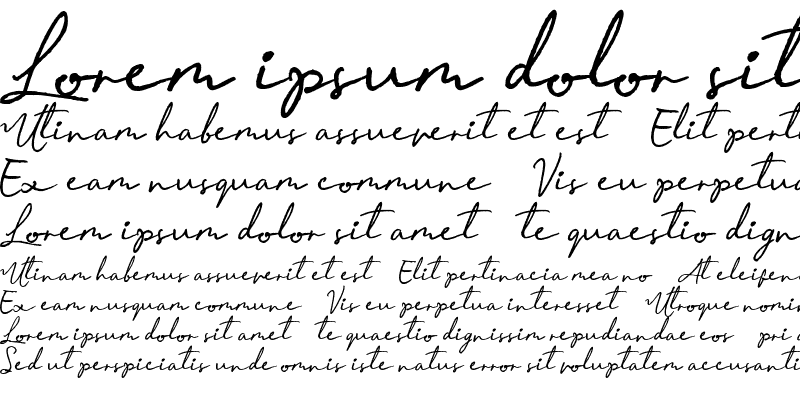 Lorem ipsum dolor sit
Utinam habemus assueverit et est Elit pert
Ex eam nusquam commune Vis eu perpetua
Lorem ipsum dolor sit amet te quaestio dign
Utinam habemus assueverit et est Elit pertinacia mea no At eleifen
Ex eam nusquam commune Vis eu perpetua interesset Utroque nomin
Lorem ipsum dolor sit amet te quaestio dignissim repudiandae eos pri
Sed ut perspiciatis unde omnis iste natus error sit voluptatem accusanti